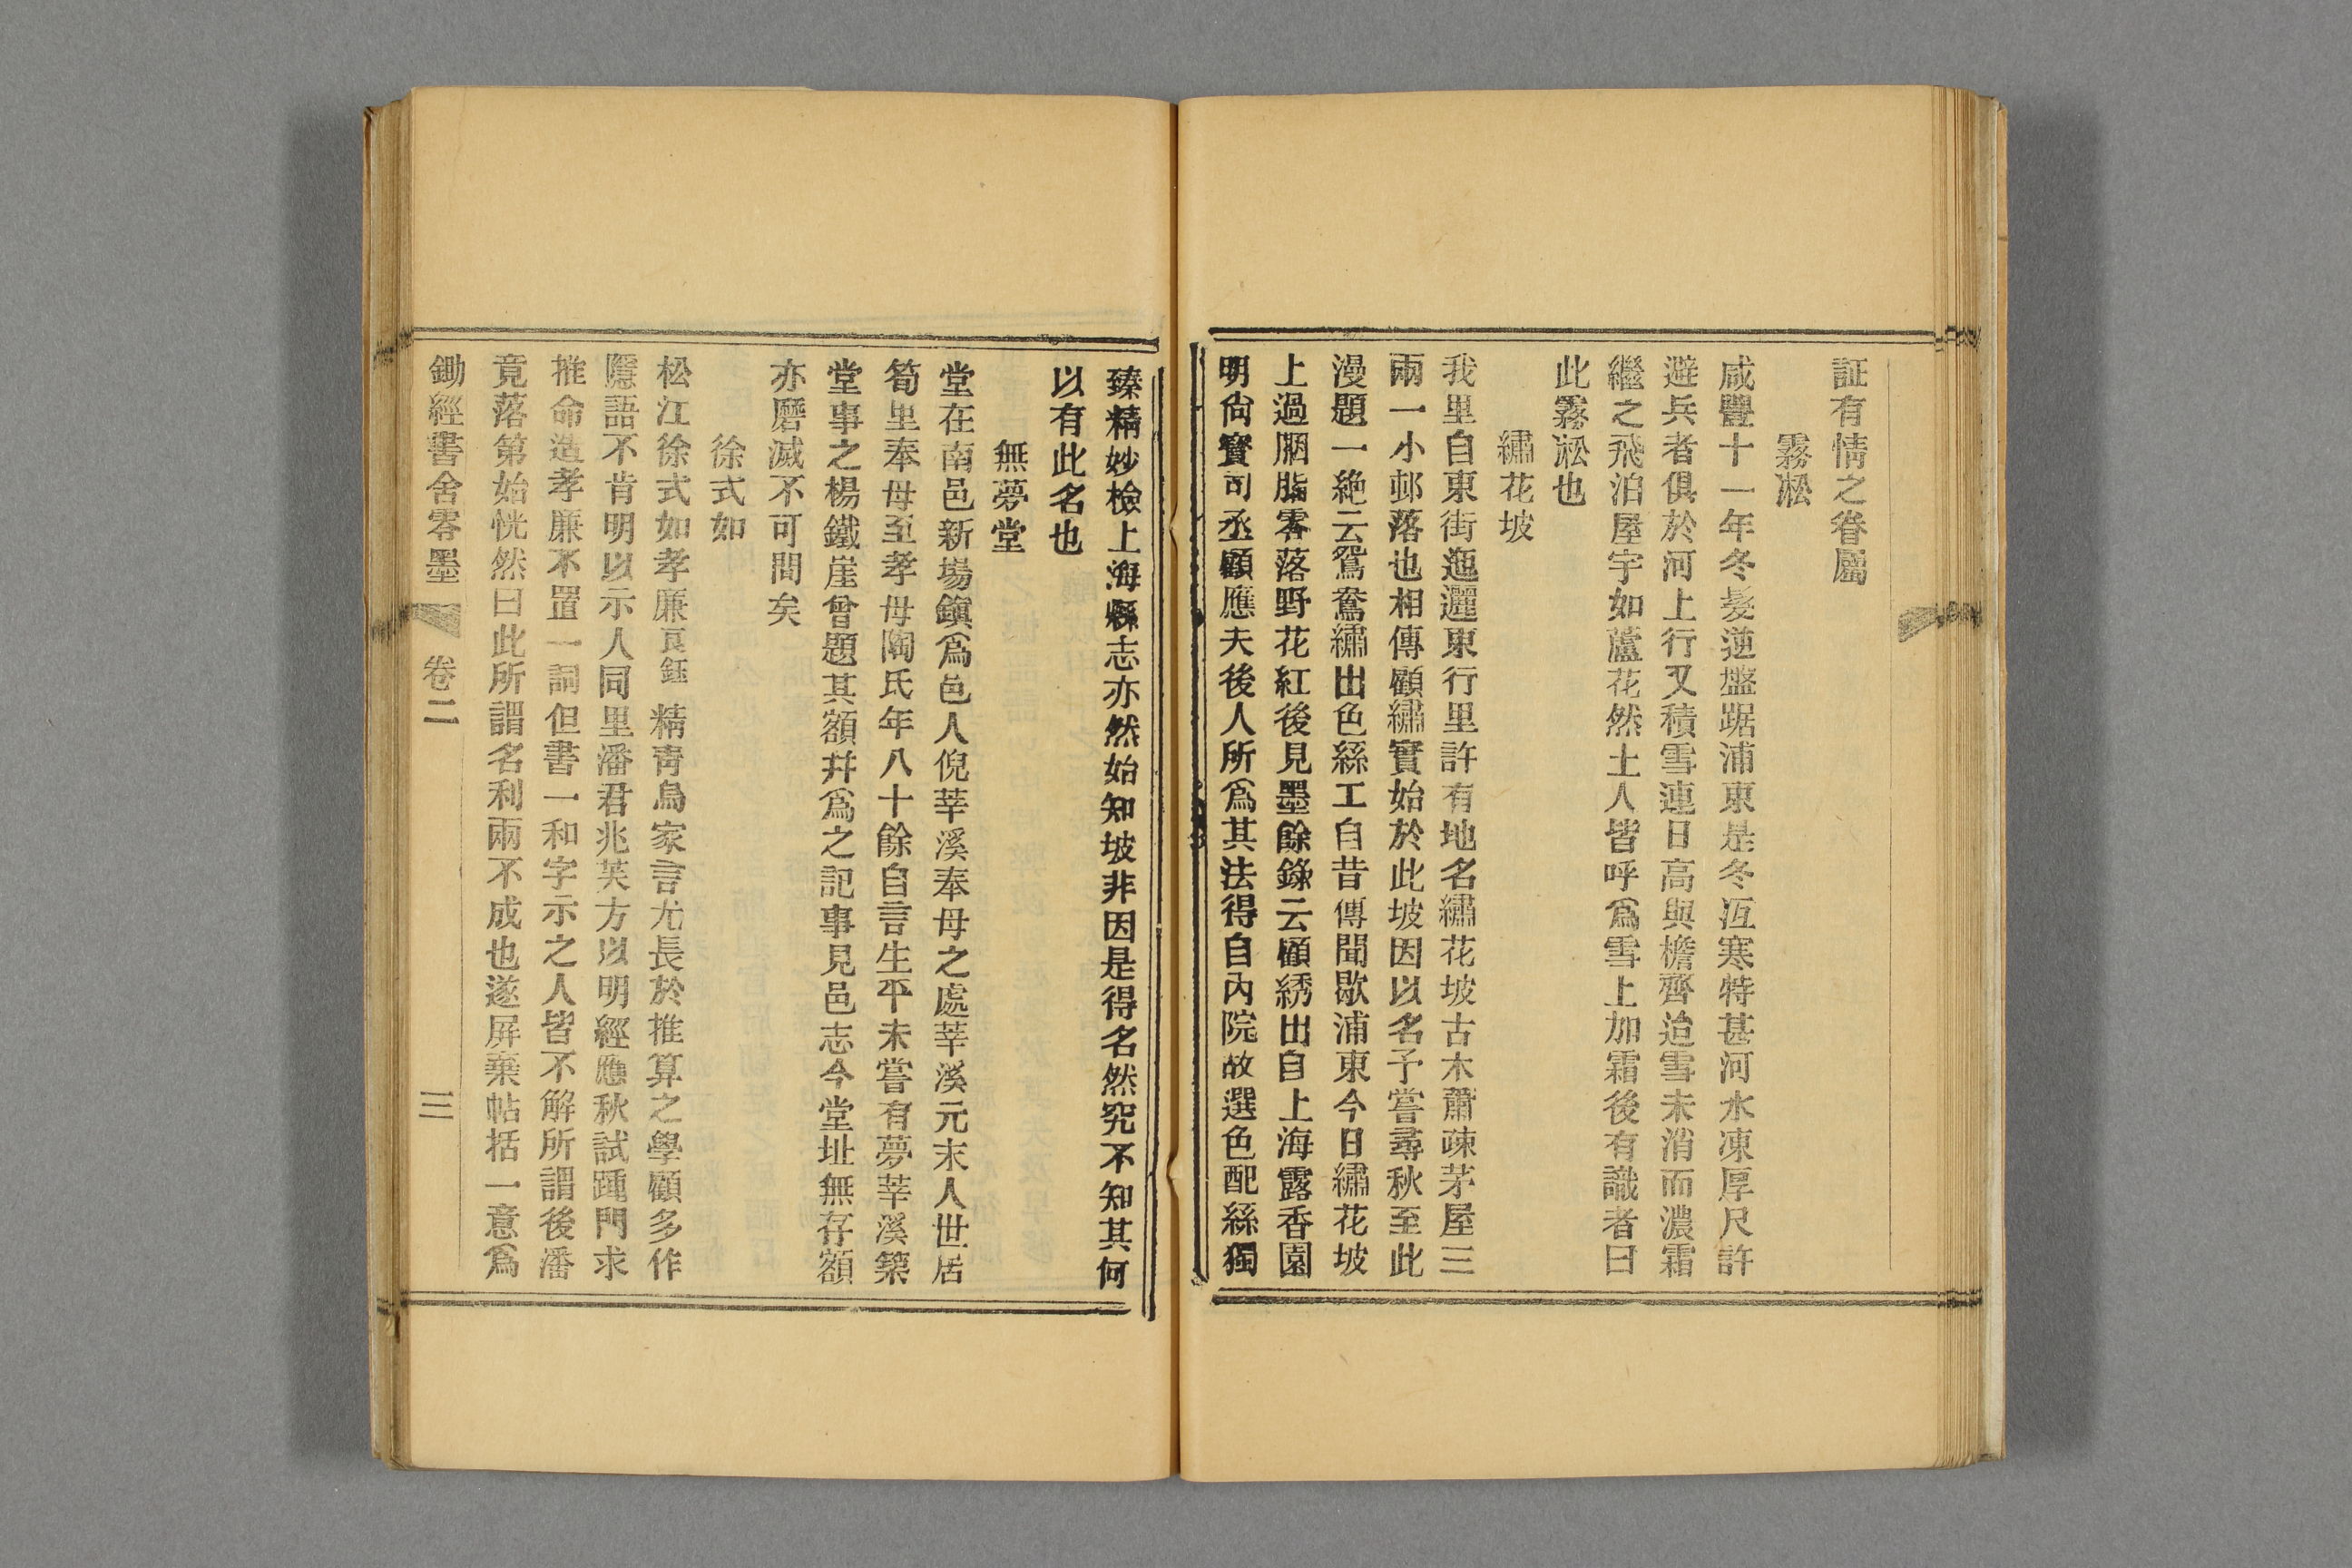 証有情之眷屬
霧凇
咸豐十一年冬髮逆盤踞浦東是冬冱寒特甚河水凍厚尺許
避兵者俱於河上行又積雪連日高與檐齊迨雪未消而濃霜
繼之飛泊屋宇如蘆花然土人皆呼爲雪上加霜後有識者曰
此霧凇也
繡花坡
我里自東街迤邐東行里許有地名繡花坡古木蕭疎茅屋三
兩一小邨落也相傳顧繡實始於此坡因以名予嘗尋秋至此
漫題一絶云鴛鴦繡出色絲工自昔傳聞歇浦東今日繡花坡
上過胭脂零落野花紅後見墨餘錄云顧綉出自上海露香園
明尙寶司丞顧應夫後人所爲其法得自內院故選色配絲獨
臻精妙檢上海縣志亦然始知坡非因是得名然究不知其何
以有此名也
無夢堂
堂在南邑新場鎭爲邑人倪莘溪奉母之處莘溪元末人世居
筍里奉母至孝母陶氏年八十餘自言生平未嘗有夢莘溪築
堂事之楊鐵崖曾題其額幷爲之記事見邑志今堂址無存額
亦磨滅不可問矣
徐式如
松江徐式如孝廉良鈺精靑烏家言尤長於推算之學顧多作
隱語不肯明以示人同里潘君兆芙方以明經應秋試踵門求
推命造孝廉不置一詞但書一和字示之人皆不解所謂後潘
竟落第始恍然曰此所謂名利兩不成也遂屛棄帖括一意爲
鋤經書舍零墨 卷二 三